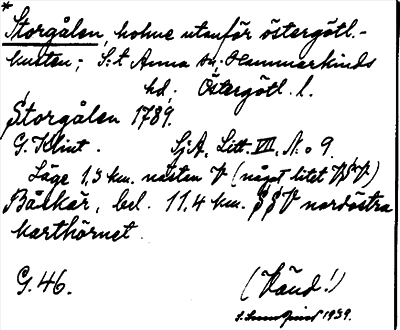 *
Storgålen, holme utanför östergötl.-
kusten; S:t Anna sn, Hammarkinds
hd, Östergötl. l.
Storgålen 1789.
G. Klint. Sj.A. Litt. VII, N:o 9.
Läge 1,3 km. nästan V (något litet VSV)
Båskär, bel. 11,4 km. SSV nordöstra
karthörnet.
G. 46. (Vänd!)
1939.